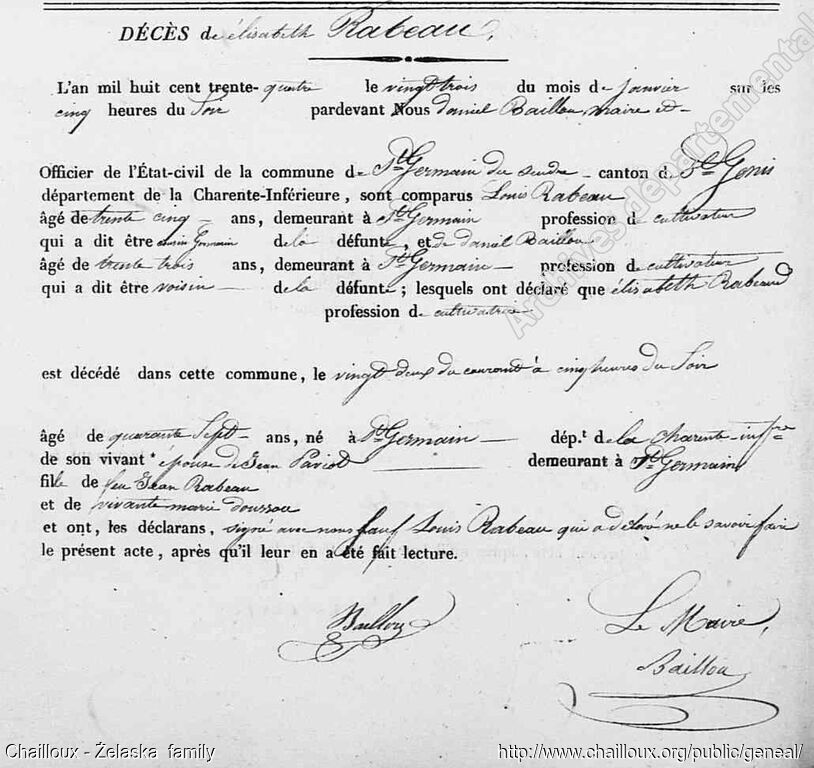 DÉCÈS de élisabeth Rabeau,
L'an mil huit cent trente-quatre le vingt trois du mois de janvier sur les
cinq heures du Soir pardevant Nous daniel Baillou, maire et
Officier de l'État-civil de la commune de St Germain du seudre canton de St Genis
département de la Charente-Inférieure, sont comparus Louis Rabeau
âgé de trente cinq ans, demeurant à St Germain profession de cultivateur
qui a dit être cousin Germain de la défunte, et de daniel Baillou
âgé de trente trois ans, demeurant à St Germain profession de cultivateur
qui a dit être voisin de la défunte; lesquels ont déclaré que élisabeth Rabeaud
profession de cultivatrice
est décédé dans cette commune, le vingt deux du courant à cinq heures du Soir
âgé de quarante Sept ans, né à St Germain dép.t de la charente infre
de son vivant épouse de Jean Paviot demeurant à St Germain
fille de feu Jean Rabeau
et de vivante marie doussou
et ont, les déclarans, signé avec nous sauf Louis Rabeau qui a déclaré ne le savoir faire
le présent acte, après qu'il leur en a été fait lecture.
Baillou
Le Maire,
Baillou
Archives départemental
Chailloux - Želaska family
http://www.chailloux.org/public/geneal/